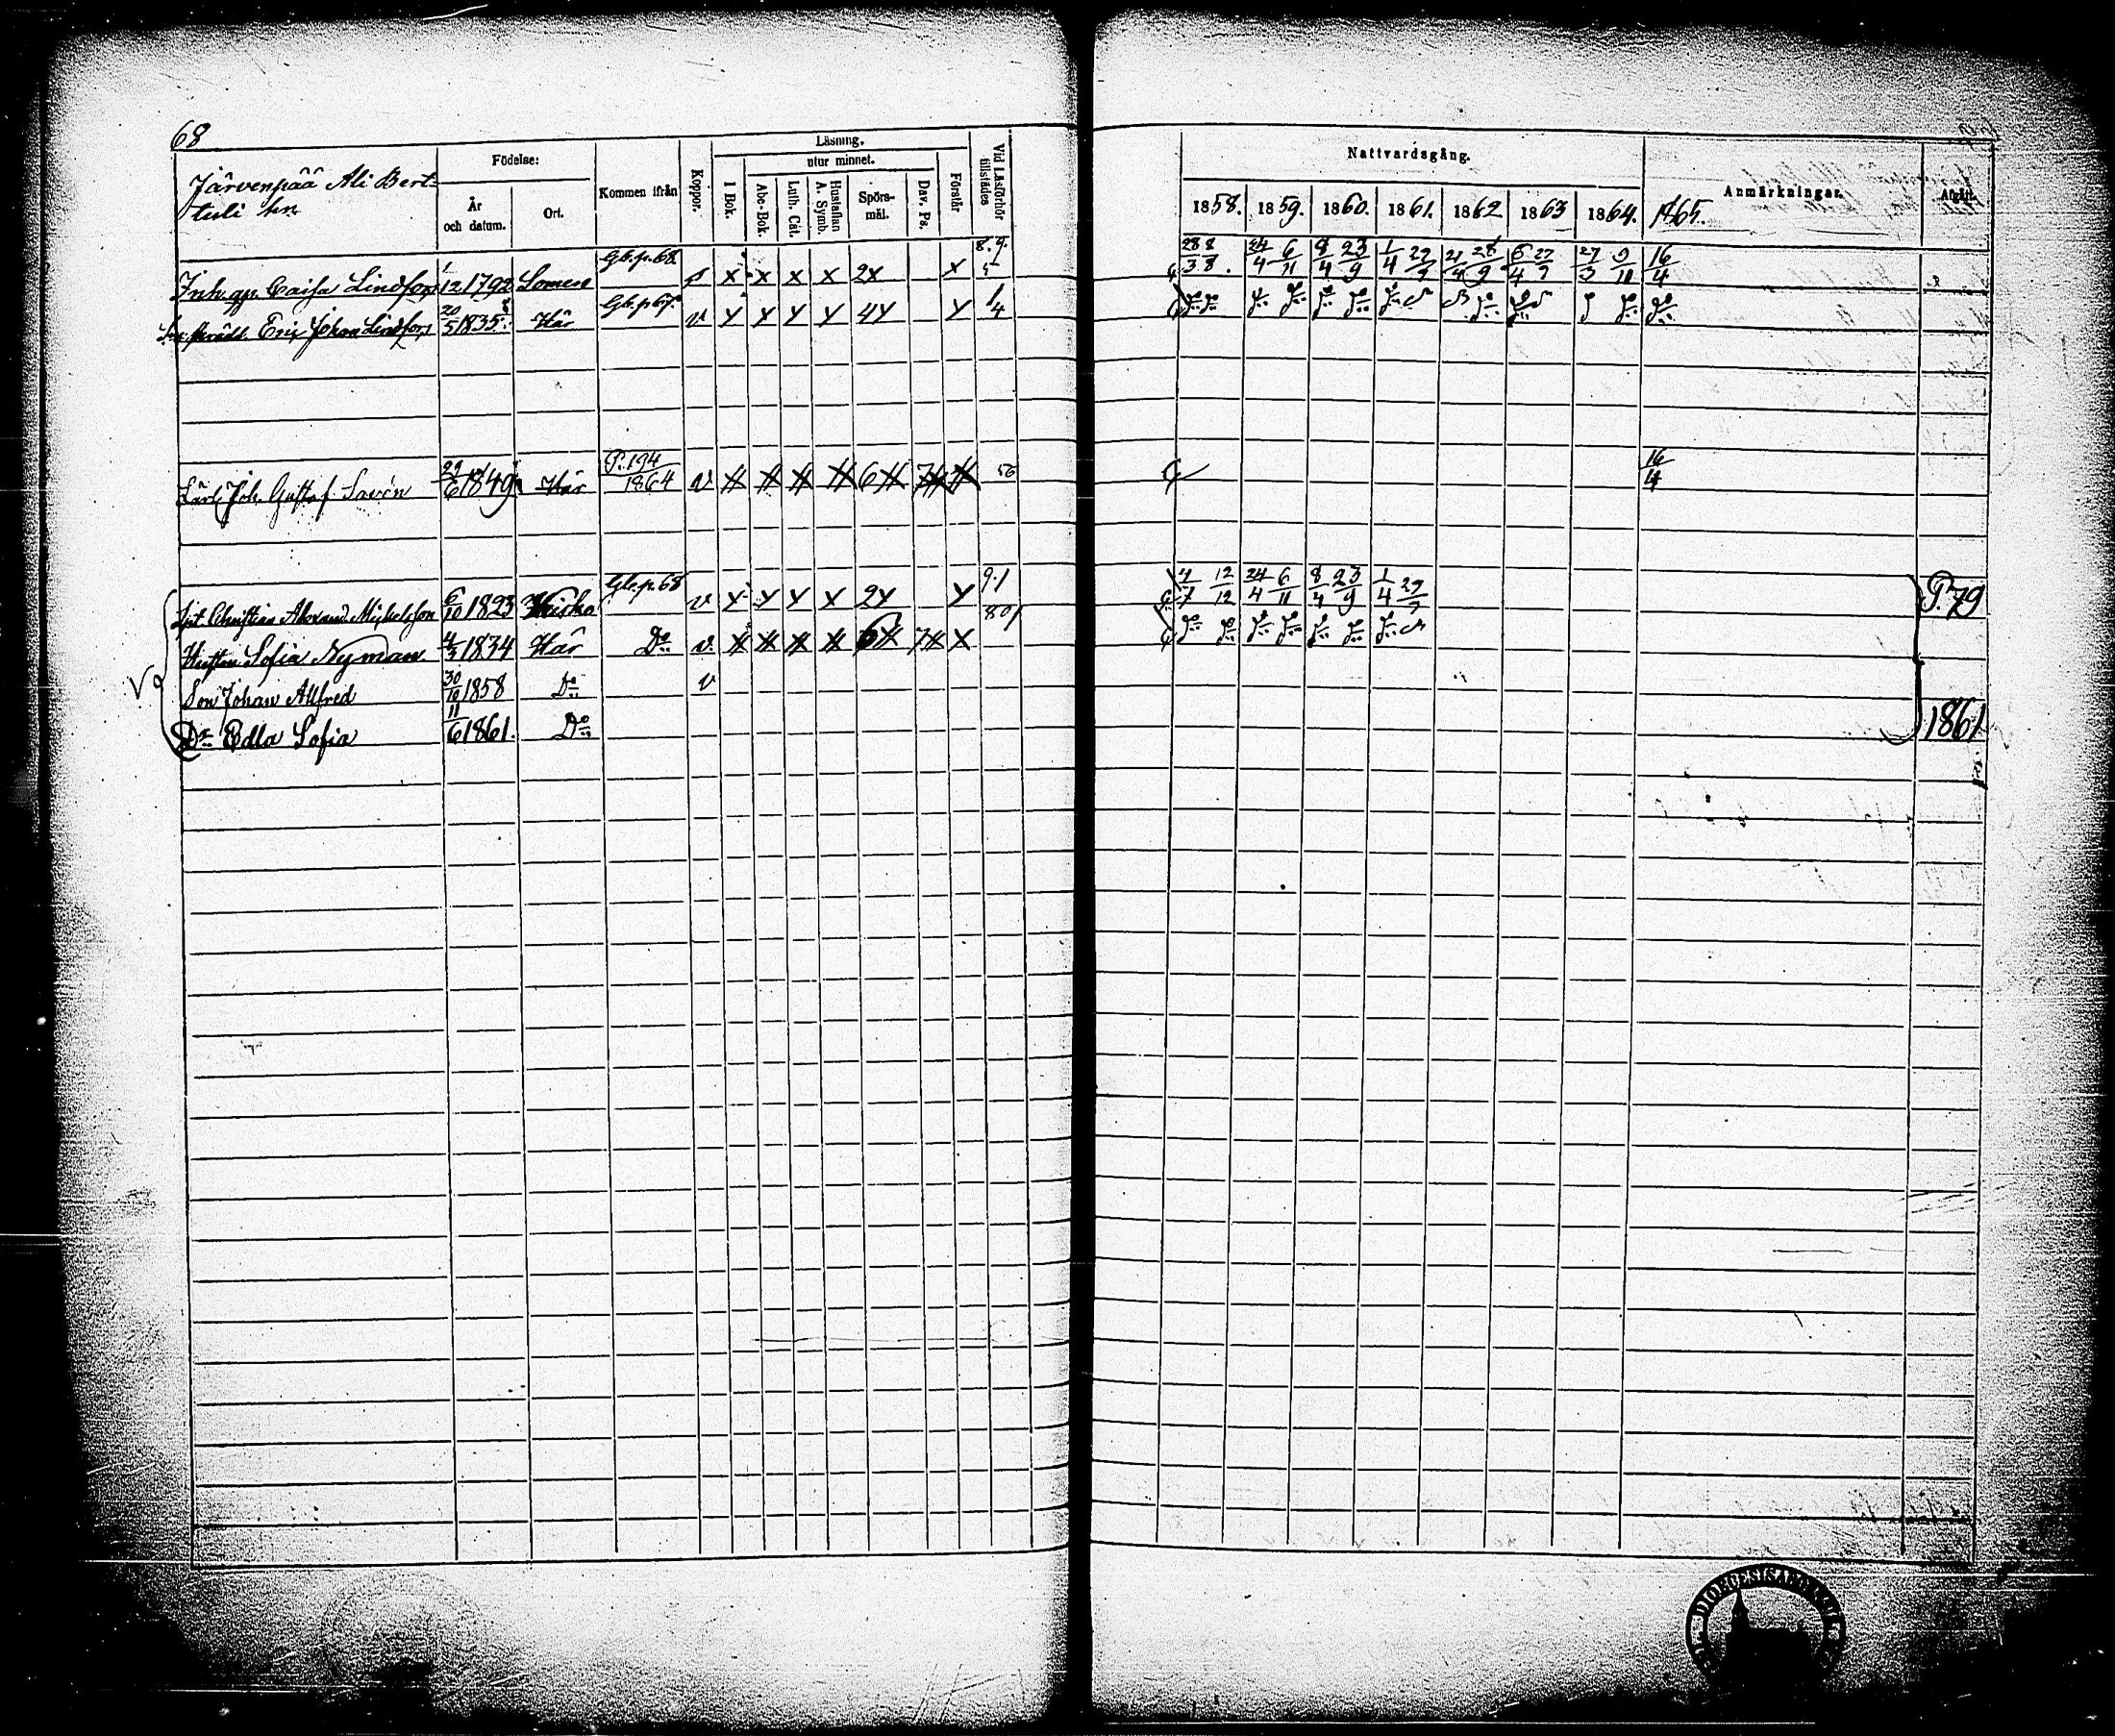 68
Järvenpää Ali Bert-
tuli hn
Födelse:
År
och datum.
Ort.
Kommen ifrån
Koppor.
Läsning,
I Bok.
utur minnet.
Abc-Bok.
Luth. Cat.
Hustaflan
A. Symb.
Spörs-
mål.
Dav. Ps.
Förstår
Vid Läsförhör
tillstädes
Nattvardsgång.
1858. 1859. 1860. 1861. 1862 1863 1864. 1865.
Anmärkningar.
Afgått.
Inh. gp. Caisa Lindfors 1/12 1792 Somero Gb. p. 68. x x x x 2x x 28/3 8/8 24/4 6/11 8/4 23/9 1/4 29/9 21/4 28/9 6/4 27/9 27/3 9/10 16/4
Eric Johan Lindfors 20/5 1835 Här Gb. p 67. v Y Y Y Y 4Y Y 1/4
Lärl. Joh. Gustaf Savén 29/6 1849 Här P. 194/1864 v. 56 16/4
Christian Alexand. Michelsson 6/10 1823 Kisko Gb. p. 68 v Y Y Y X 2Y Y 9.1 4/7 12/12 24/4 6/11 8/4 23/9 1/4 29/9 P. 79
Hustru Sofia Nyman 4/3 1834 Här Do v.
Son Johan Alfred 30/10 1858 Do v
Dr Edla Sofia 11/6 1861. Do 1861
DIOECESIS ABOENSIS